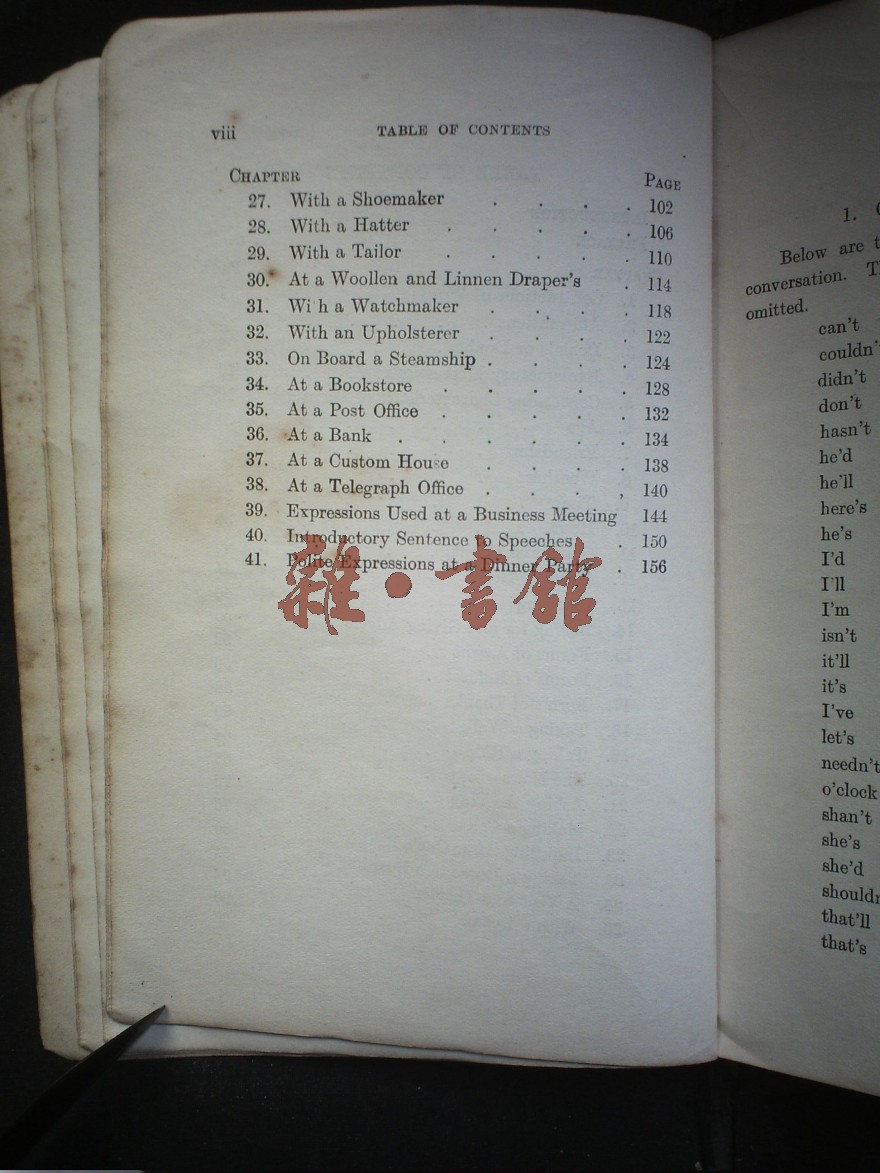 viii TABLE OF CONTENTS
CHAPTER PAGE
27. With a Shoemaker . . . . 102
28. With a Hatter . . . . . 106
29. With a Tailor . . . . . 110
30. At a Woollen and Linnen Draper's . 114
31. Wi h a Watchmaker . . . . 118
32. With an Upholsterer . . . . 122
33. On Board a Steamship . . . . 124
34. At a Bookstore . . . . . 128
35. At a Post Office . . . . . 132
36. At a Bank . . . . . . 134
37. At a Custom House . . . . 138
38. At a Telegraph Office . . . , 140
39. Expressions Used at a Business Meeting 144
40. Introductory Sentence to Speeches . 150
41. Polite Expressions at a Dinner Party . 156
雜·書館
1.
Below are
conversation.
omitted.
can't
couldn'
didn't
don't
hasn't
he'd
he'll
here's
he's
I'd
I'll
I'm
isn't
it'll
it's
I've
let's
needn't
o'clock
shan't
she's
she'd
shouldn
that'll
that's